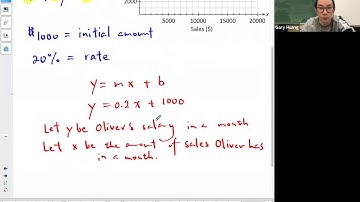 5000 10000 15000 20000
Sales ($)
x
$1000 = initial amount
20% = rate
y = mx + b
y = 0.2x + 1000
Let y be Oliver's salary in a month
Let x be the amount of sales Oliver has
in a month.